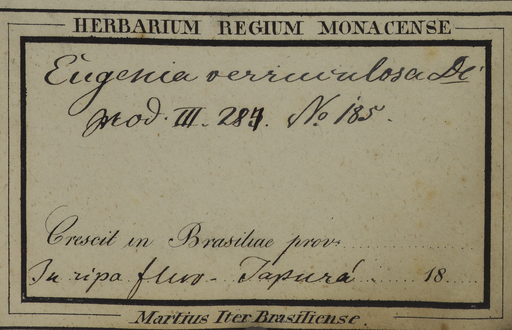 HERBARIUM REGIUM MONACENSE
Eugenia verruculosa Dc
prod. III. 284. No 185.
Crescit in Brasiliae prov.
In ripa fluv. Japurá 18
Martius Iter Brasiliense.